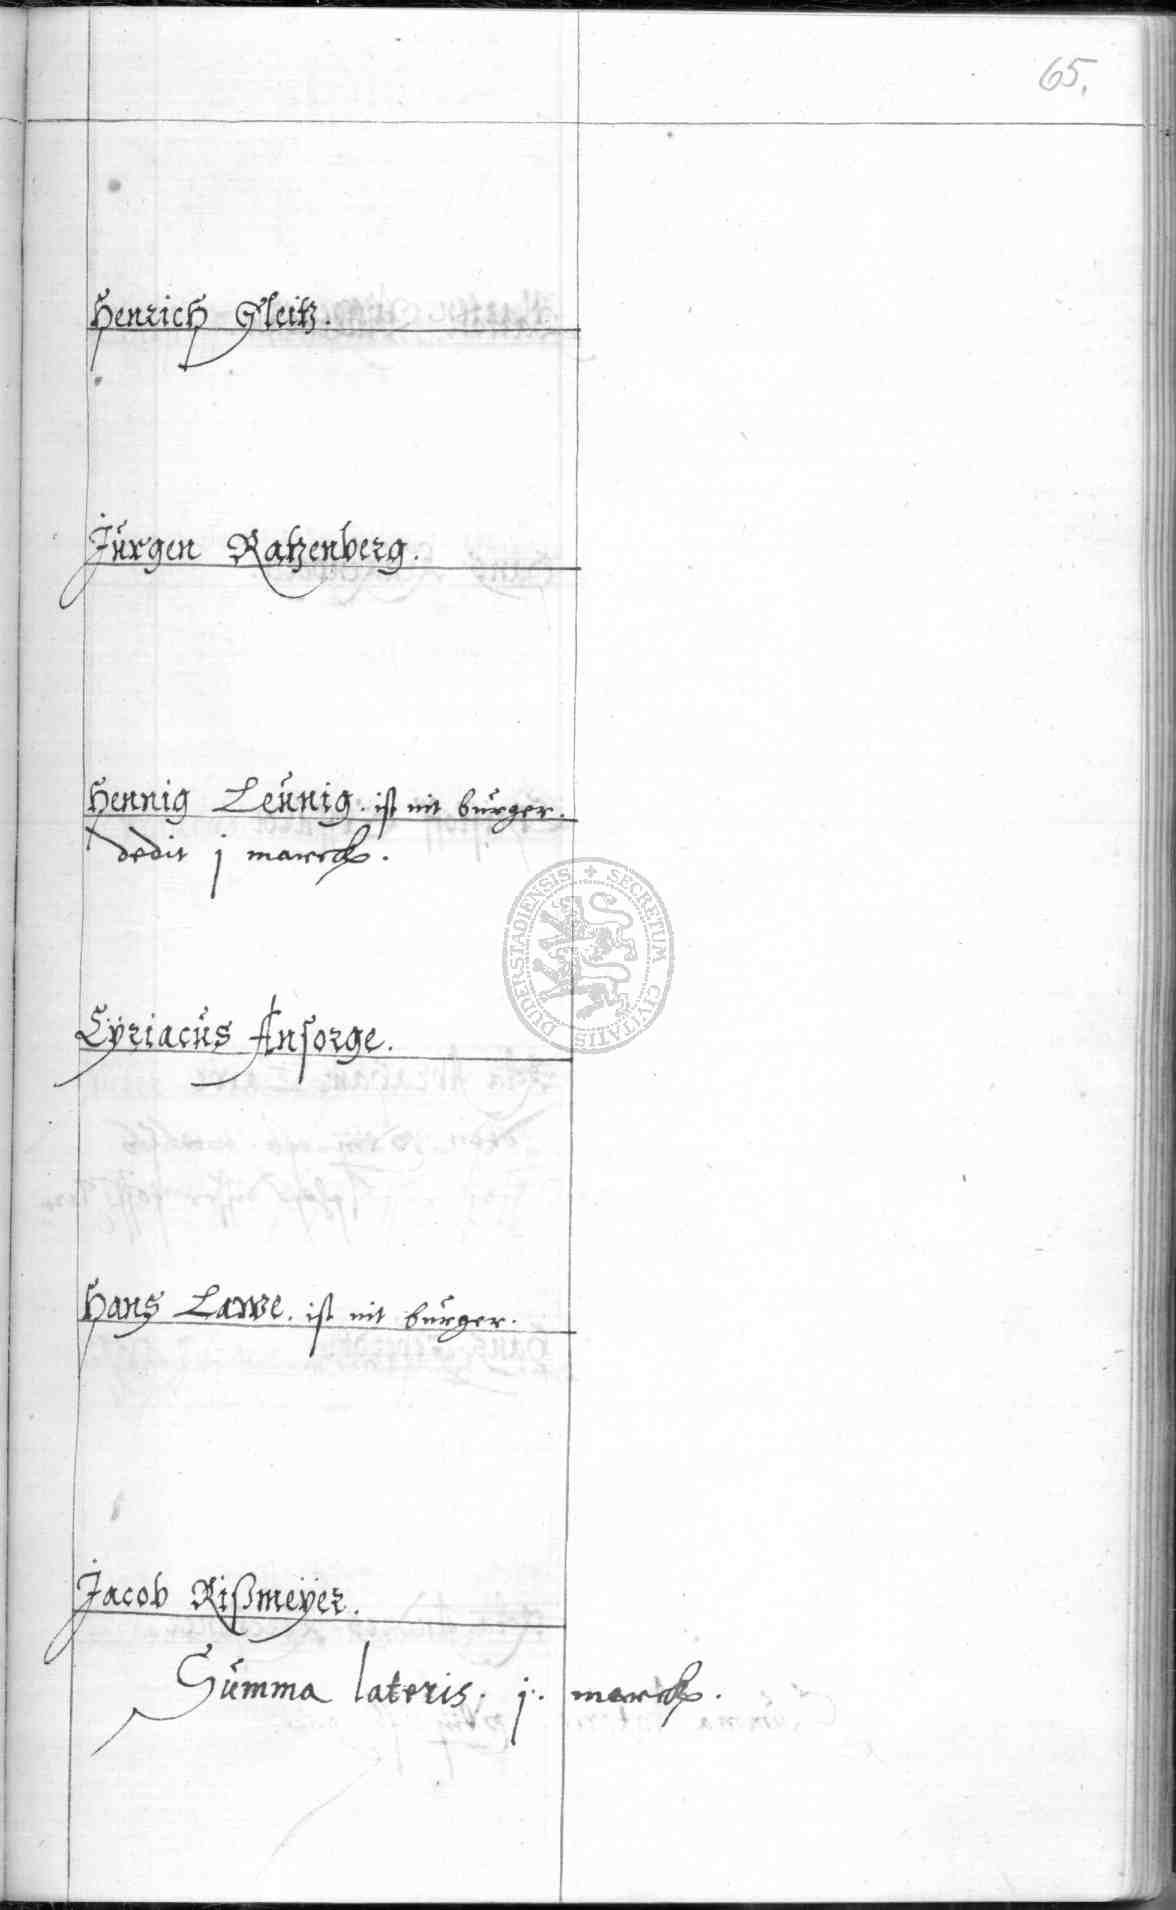 65.
Henrich Gleitz.
Jürgen Ratzenberg.
Hennig Leünig. ist nit bürger.
dedit j marck.
SECRETUM CIVITATIS DUDERSTADIENSIS
Cÿriacüs Ansorge.
Hans Lawe. ist nit bürger.
Jacob Rißmeÿer.
Sümma lateris. j. marck.